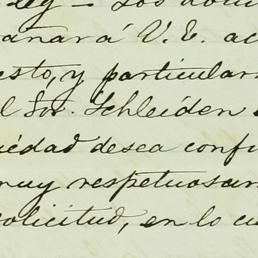 ley — Los docu
anará V. E. ac
esto, y particular
l Sor. Schleiden
iedad desea conf
muy respetuosam
solicitud, en lo cu